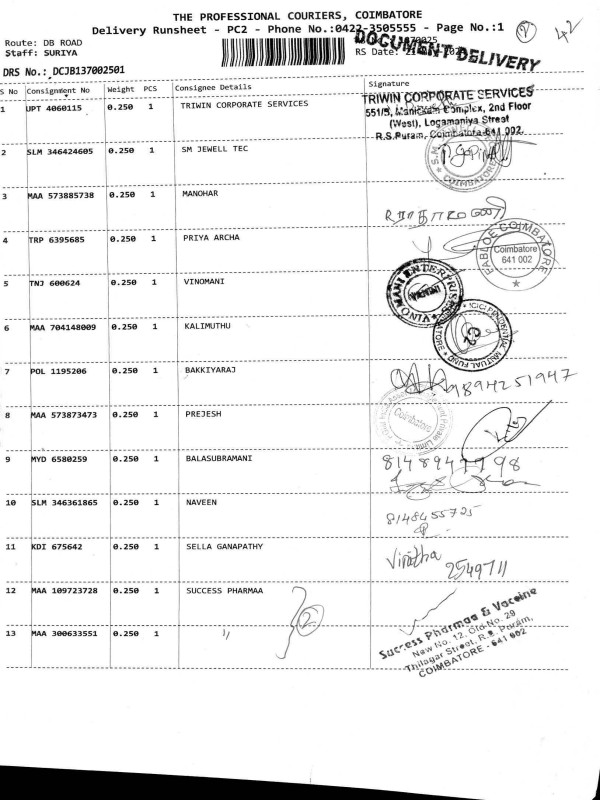 THE PROFESSIONAL COURIERS, COIMBATORE
Delivery Runsheet - PC2 - Phone No.:0422-3505555 - Page No.:1
2 42
Route: DB ROAD
Staff: SURIYA
RS Date:
DOCUMENT DELIVERY
DRS No.: DCJB137002501
S No Consignment No Weight PCS Consignee Details Signature
1 UPT 4060115 0.250 1 TRIWIN CORPORATE SERVICES
TRIWIN CORPORATE SERVICES
551/5, Manickam Complex, 2nd Floor
(West), Logamaniya Street
R.S.Puram, Coimbatore-641 002.
2 SLM 346424605 0.250 1 SM JEWELL TEC
COIMBATORE
3 MAA 573885738 0.250 1 MANOHAR
4 TRP 6395685 0.250 1 PRIYA ARCHA
FABLOE COIMBATORE
Coimbatore
641 002
5 TNJ 600624 0.250 1 VINOMANI
VINO MANI ENTERPRISES
6 MAA 704148009 0.250 1 KALIMUTHU
ICICI PRUDENTIAL MUTUAL FUND
7 POL 1195206 0.250 1 BAKKIYARAJ
9894251947
8 MAA 573873473 0.250 1 PREJESH
Coimbatore
9 MYD 6580259 0.250 1 BALASUBRAMANI
10 SLM 346361865 0.250 1 NAVEEN
8148455725
11 KDI 675642 0.250 1 SELLA GANAPATHY
2549711
12 MAA 109723728 0.250 1 SUCCESS PHARMAA
2
13 MAA 300633551 0.250 1 "
Success Pharmaa & Vaccine
New No. 12, Old No. 29
Thilagar Street, R.S. Puram,
COIMBATORE - 641 002